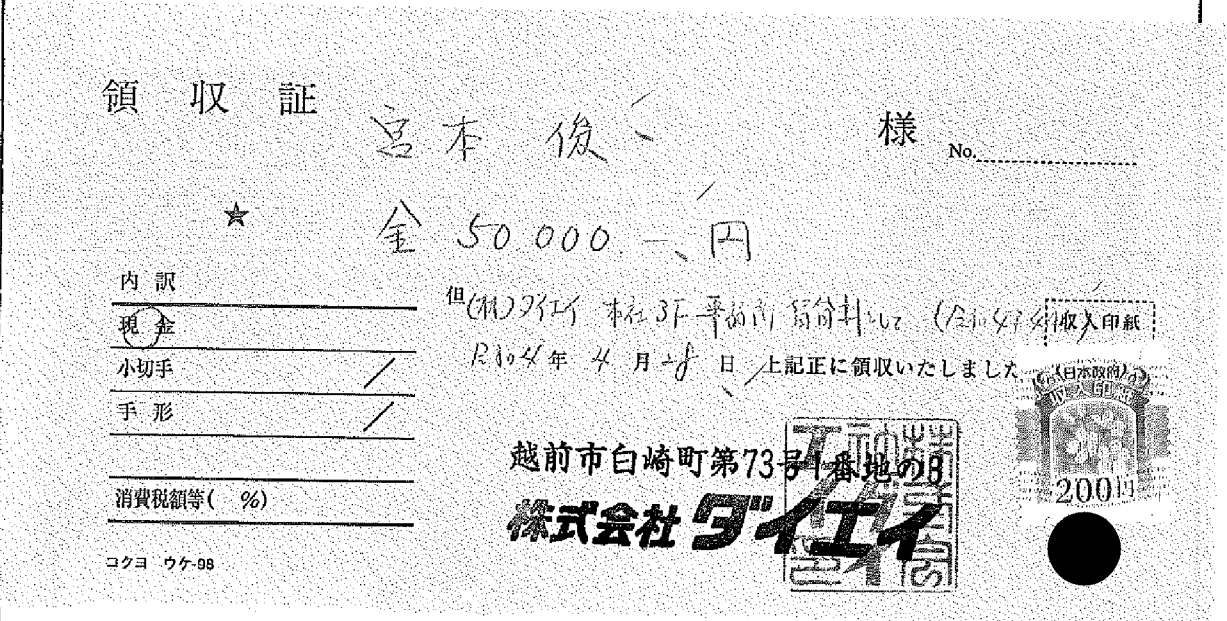 領収証
宮本 俊 様
No.
★
金 50 000. 円
内訳
現金
小切手
手形
消費税額等( %)
但 (株)ダイエイ 本社3F 事務所 賃貸料として (令和4年4月分)
令和4年 4月28日 上記正に領収いたしました
収入印紙
(日本政府)
収入印紙
200円
越前市白崎町第73号1番地の8
株式会社ダイエイ
コクヨ ウケ-98